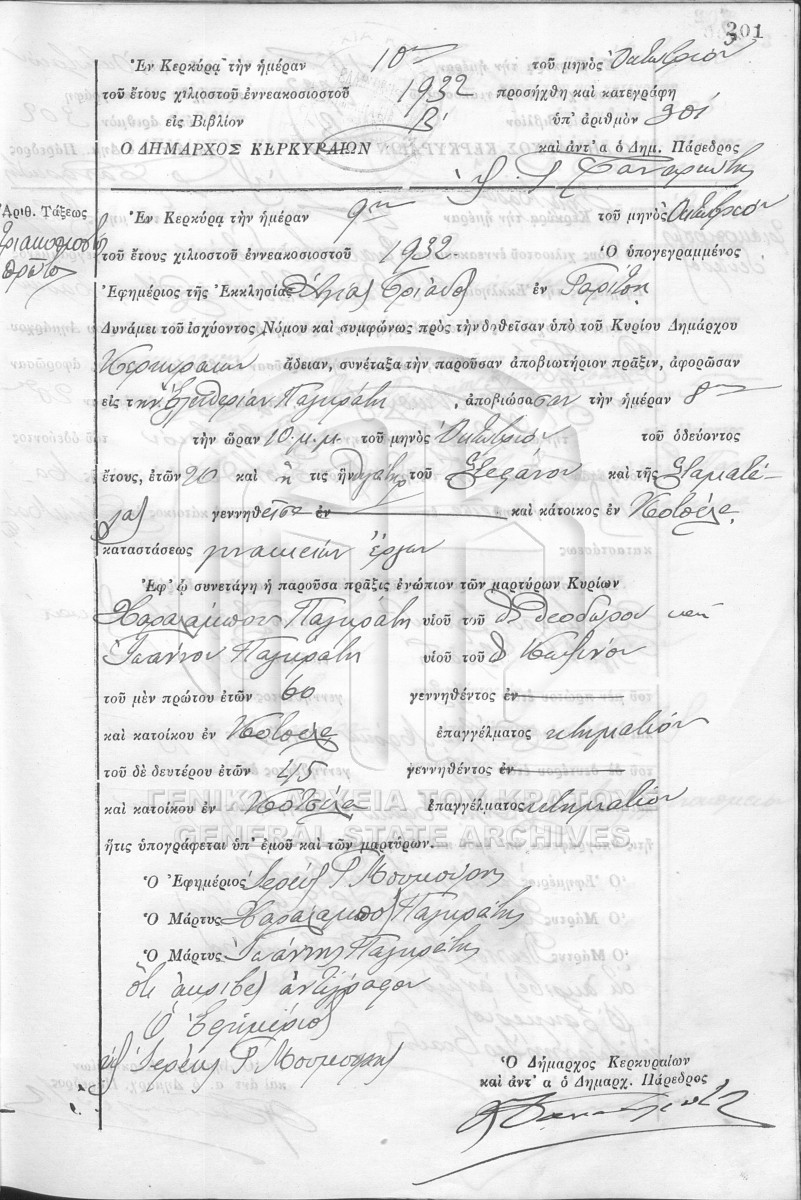 301
Ἐν Κερκύρᾳ τὴν ἡμέραν 10ην τοῦ μηνὸς Ὀκτωβρίου
τοῦ ἔτους χιλιοστοῦ ἐννεακοσιοστοῦ 1932 προσήχθη καὶ κατεγράφη
εἰς Βιβλίον Β' ὑπ' ἀριθμὸν 301
Ο ΔΗΜΑΡΧΟΣ ΚΕΡΚΥΡΑΙΩΝ καὶ ἀντ' α ὁ Δημ. Πάρεδρος
Ἀριθ. Τάξεως
τριακοσιοστὴ
πρώτη
Ἐν Κερκύρᾳ τὴν ἡμέραν 9ην τοῦ μηνὸς Ὀκτωβρίου
τοῦ ἔτους χιλιοστοῦ ἐννεακοσιοστοῦ 1932 Ὁ ὑπογεγραμμένος
Ἐφημέριος τῆς Ἐκκλησίας Ἁγίας Τριάδος ἐν Γαρίτσῃ
Δυνάμει τοῦ ἰσχύοντος Νόμου καὶ συμφώνως πρὸς τὴν δοθεῖσαν ὑπὸ τοῦ Κυρίου Δημάρχου
Κερκυραίων ἄδειαν, συνέταξα τὴν παροῦσαν ἀποβιωτήριον πρᾶξιν, ἀφορῶσαν
εἰς τὴν Ἐλευθερίαν Παγκράτη, ἀποβιώσασαν τὴν ἡμέραν 8ην
τὴν ὥραν 10 μ.μ. τοῦ μηνὸς Ὀκτωβρίου τοῦ ὁδεύοντος
ἔτους, ἐτῶν 20 καὶ ἥ τις ἦν θυγάτηρ τοῦ Στεφάνου καὶ τῆς Σταματέ-
λας γεννηθεῖσα ἐν καὶ κάτοικος ἐν Κοτσέλα
καταστάσεως γυναικείων ἔργων
Ἐφ' ᾧ συνετάγη ἡ παροῦσα πρᾶξις ἐνώπιον τῶν μαρτύρων Κυρίων
Χαραλάμπου Παγκράτη υἱοῦ τοῦ Θεοδώρου καὶ
Ἰωάννου Παγκράτη υἱοῦ τοῦ
τοῦ μὲν πρώτου ἐτῶν 60 γεννηθέντος ἐν
καὶ κατοίκου ἐν Κοτσέλα ἐπαγγέλματος κτηματίου
τοῦ δὲ δευτέρου ἐτῶν 45 γεννηθέντος ἐν
καὶ κατοίκου ἐν Κοτσέλα ἐπαγγέλματος κτηματίου
ΓΕΝΙΚΑ ΑΡΧΕΙΑ ΤΟΥ ΚΡΑΤΟΥΣ
GENERAL STATE ARCHIVES
ἥτις ὑπογράφεται ὑπ' ἐμοῦ καὶ τῶν μαρτύρων.
Ὁ Ἐφημέριος Ἱερεὺς Γ
Ὁ Μάρτυς Χαράλαμπος Παγκράτης
Ὁ Μάρτυς Ἰωάννης Παγκράτης
ὅτι ἀκριβὲς ἀντίγραφον
Ὁ Ἐφημέριος
Ἱερεὺς Γ
Ὁ Δήμαρχος Κερκυραίων
καὶ ἀντ' α ὁ Δημαρχ. Πάρεδρος